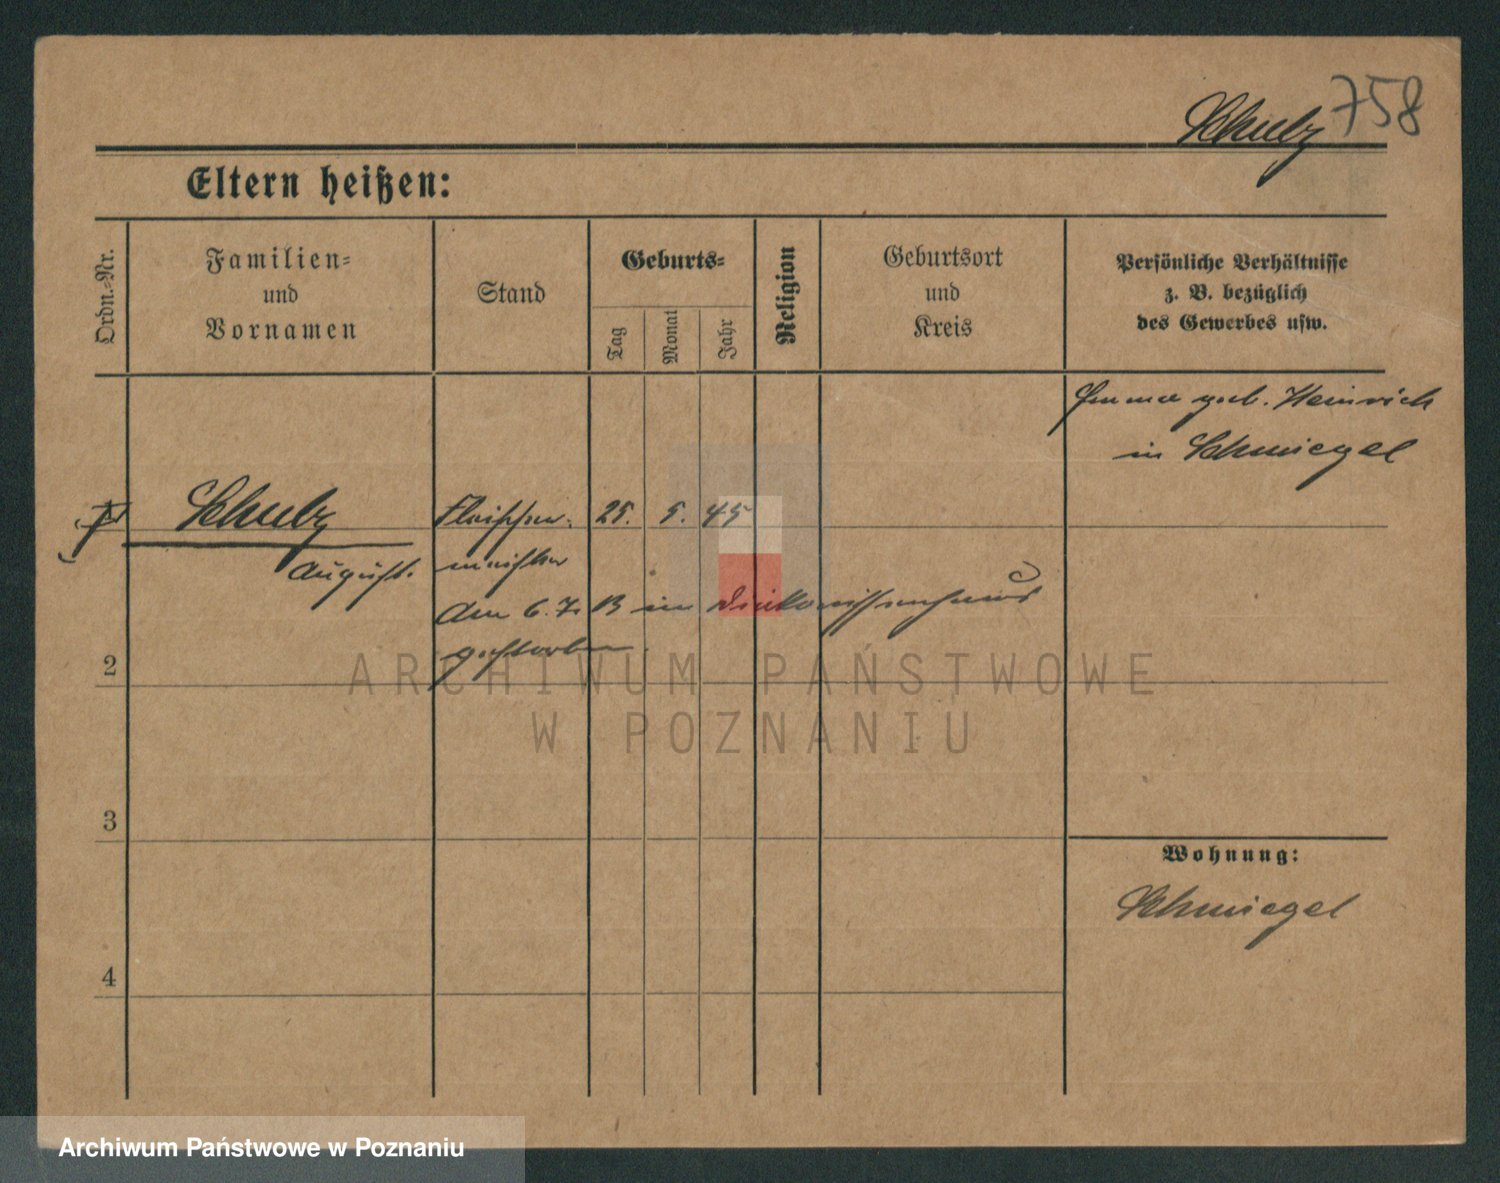 Schulz 758
Eltern heißen:
Ordn.-Nr.
Familien-
und
Vornamen
Stand
Geburts-
Tag
Monat
Jahr
Religion
Geburtsort
und
Kreis
Persönliche Verhältnisse
z. B. bezüglich
des Gewerbes usw.
Emma geb. Heinrich
in Schmiegel
Schulz Fleischer- 25. 5. 45
August. meister
am 6. 7. 13 im Diakonissenhaus
gestorben.
2
3
4
Wohnung:
Schmiegel
ARCHIWUM PAŃSTWOWE
W POZNANIU
Archiwum Państwowe w Poznaniu